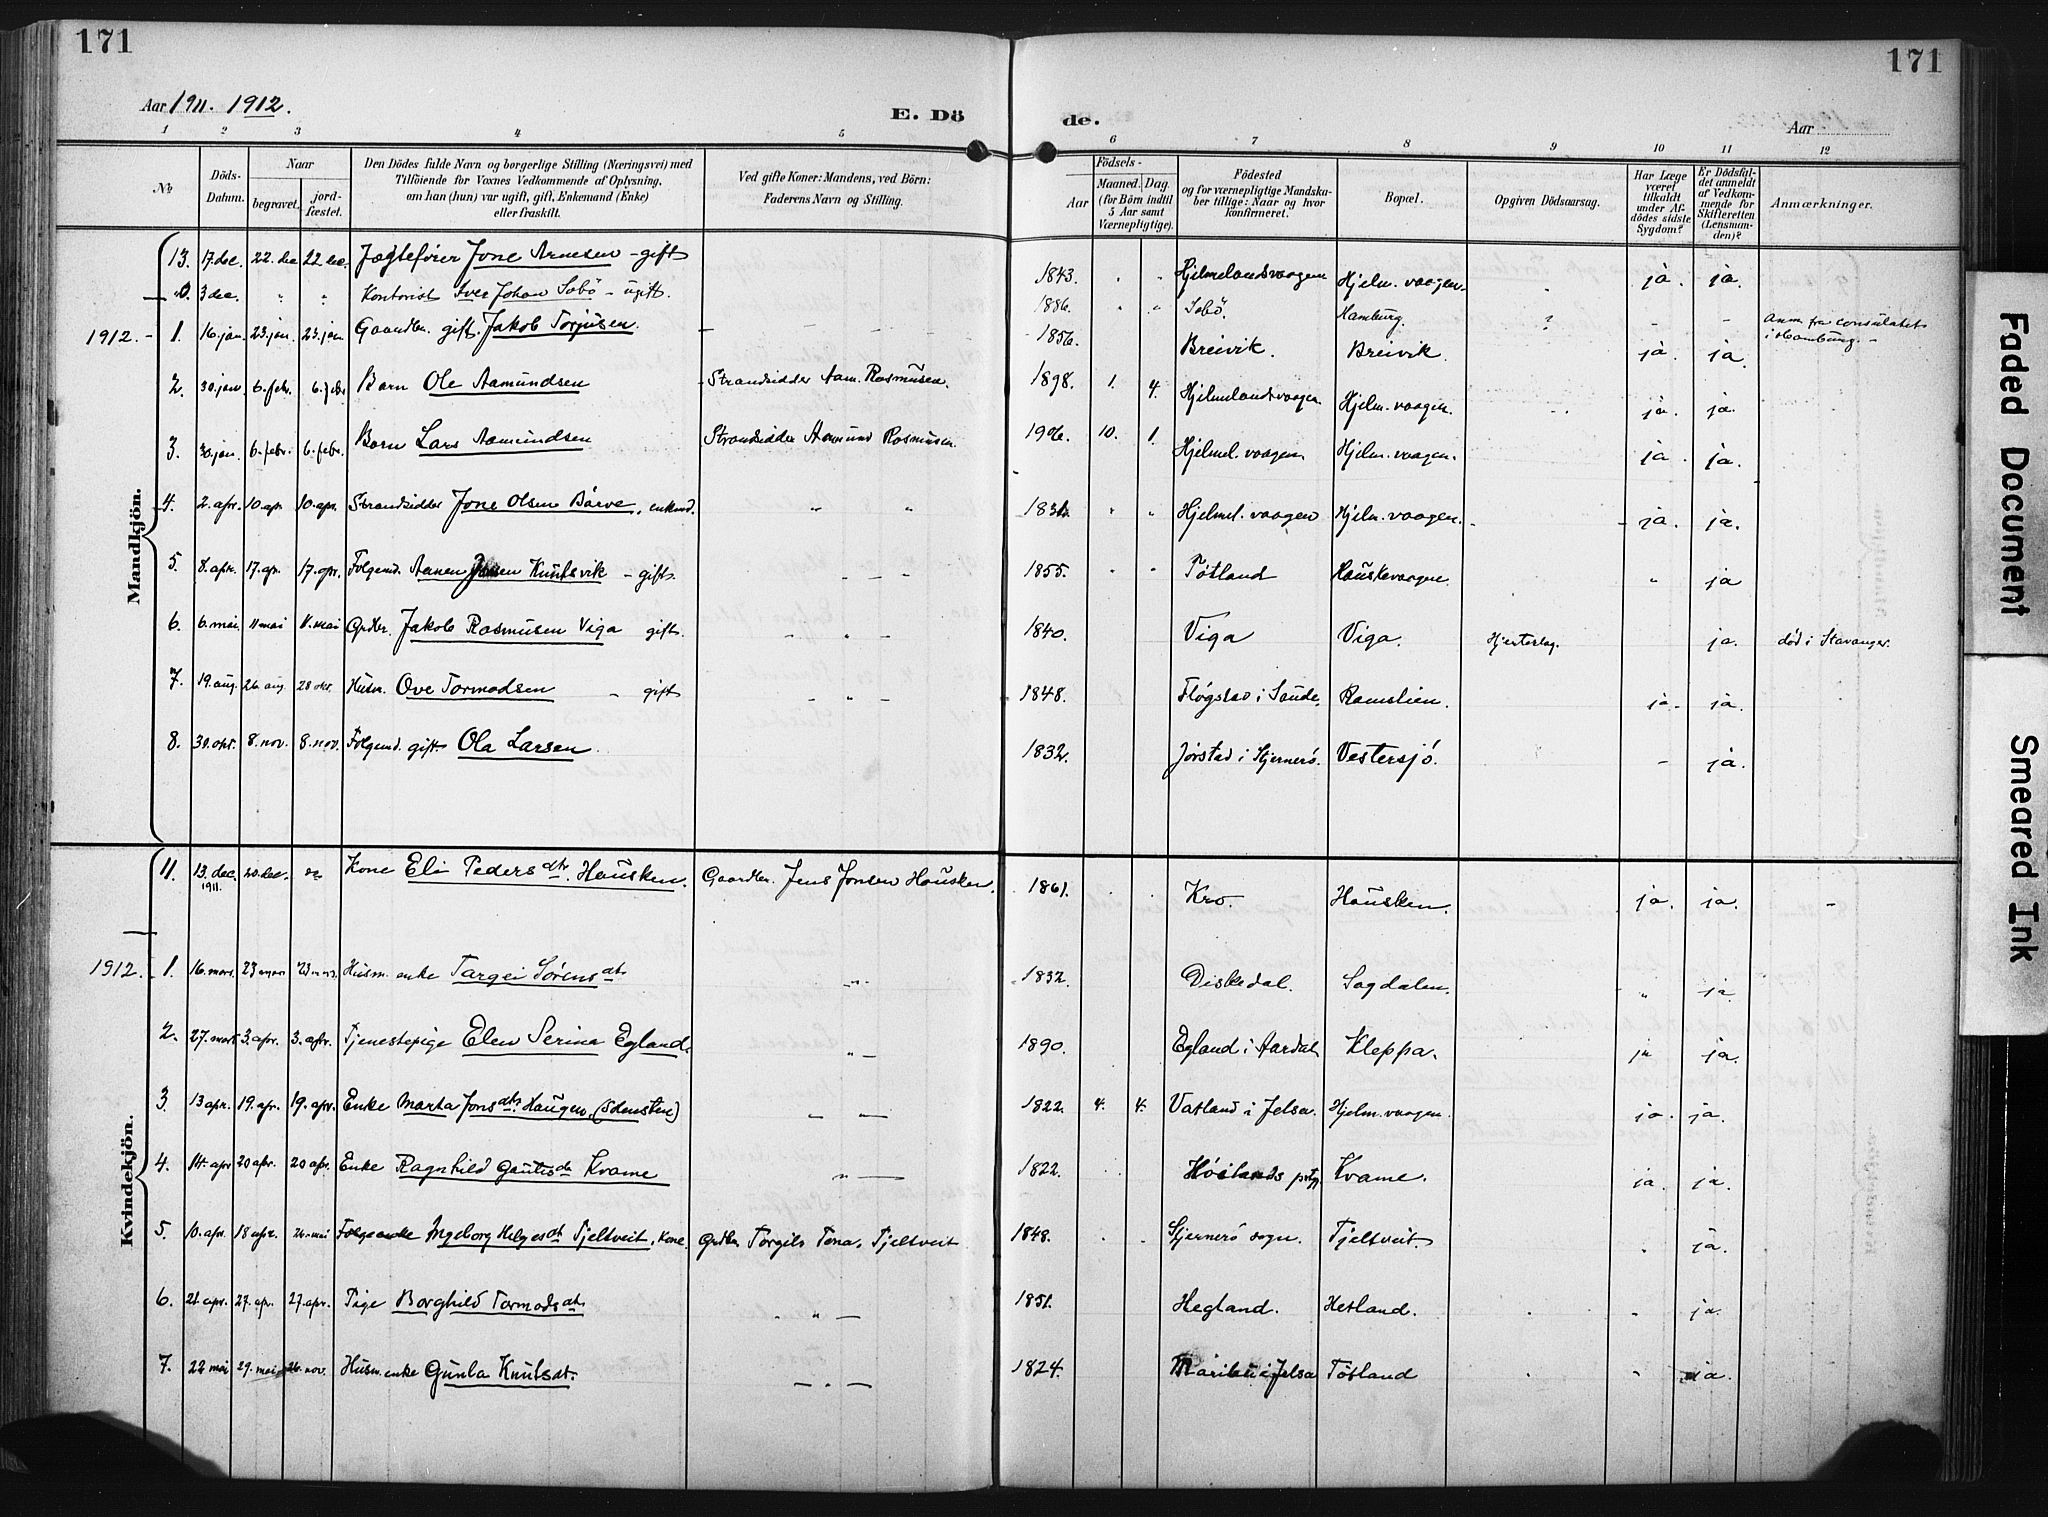 171
171
Aar 1911. 1912.
E. Dö de.
Aar
1 2 3 4 5 6 7 8 9 10 11 12
No
Döds-Datum.
Naar
begravet.
jord-fæstet.
Den Dödes fulde Navn og borgerlige Stilling (Næringsvei) med
Tilföiende for Voxnes Vedkommende af Oplysning,
om han (hun) var ugift, gift, Enkemand (Enke)
eller fraskilt.
Ved gifte Koner: Mandens, ved Börn:
Faderens Navn og Stilling.
Födsels-
Aar
Maaned. Dag
(for Börn indtil
5 Aar samt
Værnepligtige).
Födested
og for værnepligtige Mandska-
ber tillige: Naar og hvor
konfirmeret.
Bopæl.
Opgiven Dödsaarsag.
Har Læge
været
tilkaldt
under Af-
dödes sidste
Sygdom?
Er Dödsfal-
det anmeldt
af Vedkom-
mende for
Skifteretten
(Lensman-
den)?
Anmærkninger.
Mandkjön.
13. 17. dec. 22. dec 22 dec. Jægtefører Jone Arnesen - gift 1843. Hjelmelandsvaagen Hjelm. vaagen. ja. ja.
3 dec. " " Kontorist Iver Johan Sobö - ugift. 1886. " " Sobö. Hamburg. ? - - Anm. fra consulatet i Hamburg. -
1912. - 1. 16. jan. 23. jan. 23. jan. Gaardbr. gift. Jakob Torjusen. - - - 1856. Breivik. Breivik. ja. ja.
2. 30. jan. 6. febr. 6. febr. Barn Ole Aamundsen - Strandsidder Aam. Rasmusen. 1898. 1. 4. Hjelmelandsvaagen. Hjelm. vaagen. ja. ja.
3. 30. jan. 6. febr. 6. febr. Barn Lars Aamundsen Strandsidder Aamund Rasmusen. 1906. 10. 1. Hjelmel. vaagen Hjelm. vaagen. ja. ja.
4. 2. apr. 10 apr. 10. apr. Strandsidder Jone Olsen Børve, enkmd. " " Hjelmel. vaagen Hjelm. vaagen. - ja. ja.
5. 8. apr. 17. apr. 17. apr. Folgemd. Aanen Knutsvik - gift. - - 1855. " " Tøtland Hauskevaagen. " ja
6. 6. mai. 11 mai 11. mai Grdbr. Jakob Rasmusen Viga gift. - " - 1840. Viga Viga. Hjerteslag. ja. død i Stavanger.
7. 19. aug. 26. aug. 28 okt. Husm. Ove Tormodsen - gift - " - 1848. Fløgstad i Saude. Ramslien. ja. ja.
8. 30. okt. 8. nov. 8. nov. Folgemd. gift Ola Larsen. 1832. Jørstad i Stjernerö. Vestersjø. - ja.
Kvindekjön.
11. 13. dec. 1911. 20. dec. Kone Eli Pedersdtr. Hausken. Gaardbr. Jens Jonsen Hausken. 1861. Kro. Hausken. ja. ja. -
1912. - 1. 16. mars. 23 mars 23 mrs. Husm. enke Targei Sørensdt " - 1832. Diskedal. Sagdalen. " ja.
2. 27. mars 3. apr. 3. apr. Tjenestepige Elen Serina Egland. " - 1890. Egland i Aardal Kleppa. ja ja.
3. 13 apr. 19. apr. 19. apr. Enke Marta Jonsdtr Haugen. " - 1822. 4. 4. Vatland i Jelsa. Hjelm. vaagen. ja. ja.
4. 14. apr 20 apr. 20 apr. Enke Ragnhild Gautesdt Kvame " - 1822. Kvame. ja. ja.
5. 10. apr. 18 apr. Folgeenke Ingeborg Helgesdt Tjeltveit, Kone. Grdbr. Torgils Tona. Tjeltveit 1848. Stjernerö sogn. Tjeltveit. ja.
6. 21. apr. 27. apr. 27. apr. Pige Borghild Tormodsdt. " - 1851. Hegland. Hetland. - ja.
7. 22 mai 29. mai 26. nov. Husm. enke Gunla Knutsdt. - . - 1824. Tøtland " ja.
Faded Document
Smeared Ink